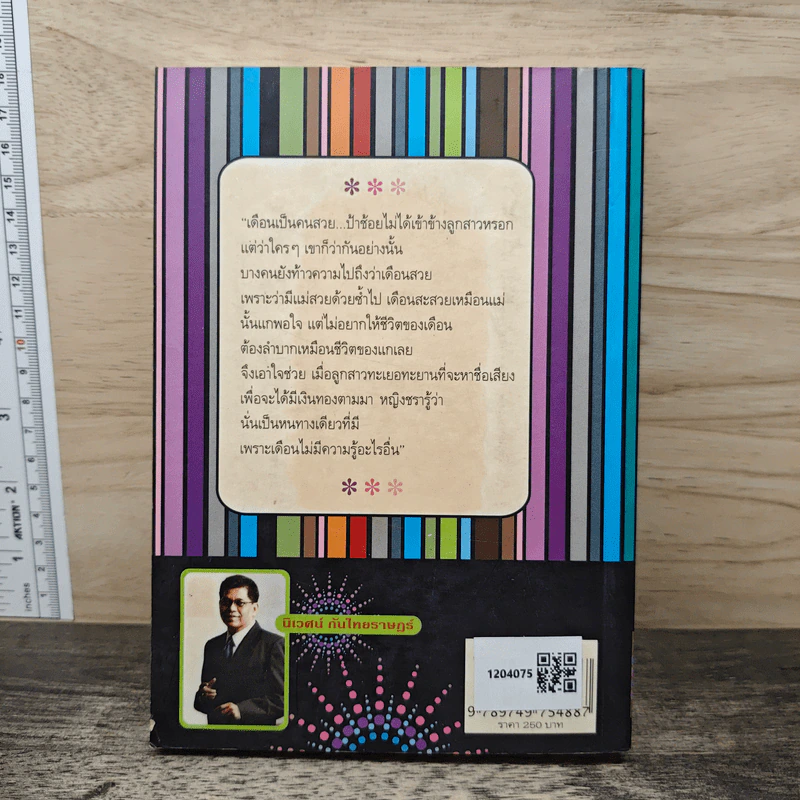 "เดือนเป็นคนสวย...ป้าช้อยไม่ได้เข้าข้างลูกสาวหรอก
แต่ว่าใครๆ เขาก็ว่ากันอย่างนั้น
บางคนยังท้าวความไปถึงว่าเดือนสวย
เพราะว่ามีแม่สวยด้วยซ้ำไป เดือนสะสวยเหมือนแม่
นั้นแกพอใจ แต่ไม่อยากให้ชีวิตของเดือน
ต้องลำบากเหมือนชีวิตของแกเลย
จึงเอาใจช่วย เมื่อลูกสาวทะเยอทะยานที่จะหาชื่อเสียง
เพื่อจะได้มีเงินทองตามมา หญิงชรารู้ว่า
นั่นเป็นหนทางเดียวที่มี
เพราะเดือนไม่มีความรู้อะไรอื่น"
นิเวศน์ กันไทยราษฎร์
1204075
9 789749 754887
ราคา 250 บาท
AKTION
inches
1
2
10
13
14
15
16
17